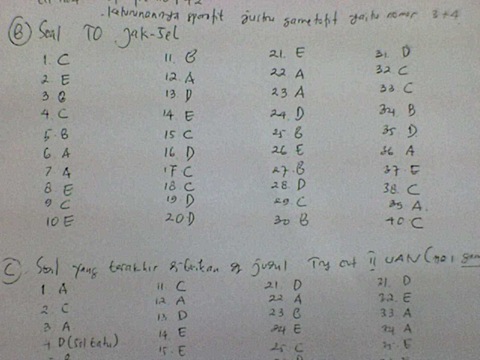 justru gametofit yaitu nomor 3+4
B Soal TO Jak-Sel
1. C 11. B 21. E 31. D
2. E 12. A 22. A 32. C
3. B 13. D 23. A 33. C
4. C 14. E 24. D 34. B
5. B 15. C 25. B 35. D
6. A 16. D 26. E 36. A
7. A 17. C 27. B 37. E
8. E 18. C 28. D 38. C
9. C 19. D 29. C 39. A.
10. E 20. D 30. B 40. C
C Soal yang terakhir dg judul Try out II UAN (
1 A 11 C 21. D 21. D
2. C 12. A 22. A 22. E
3. A 13 D 23 B 33 A
4. D 14 E 24 E 34 A
15. E 25 C E